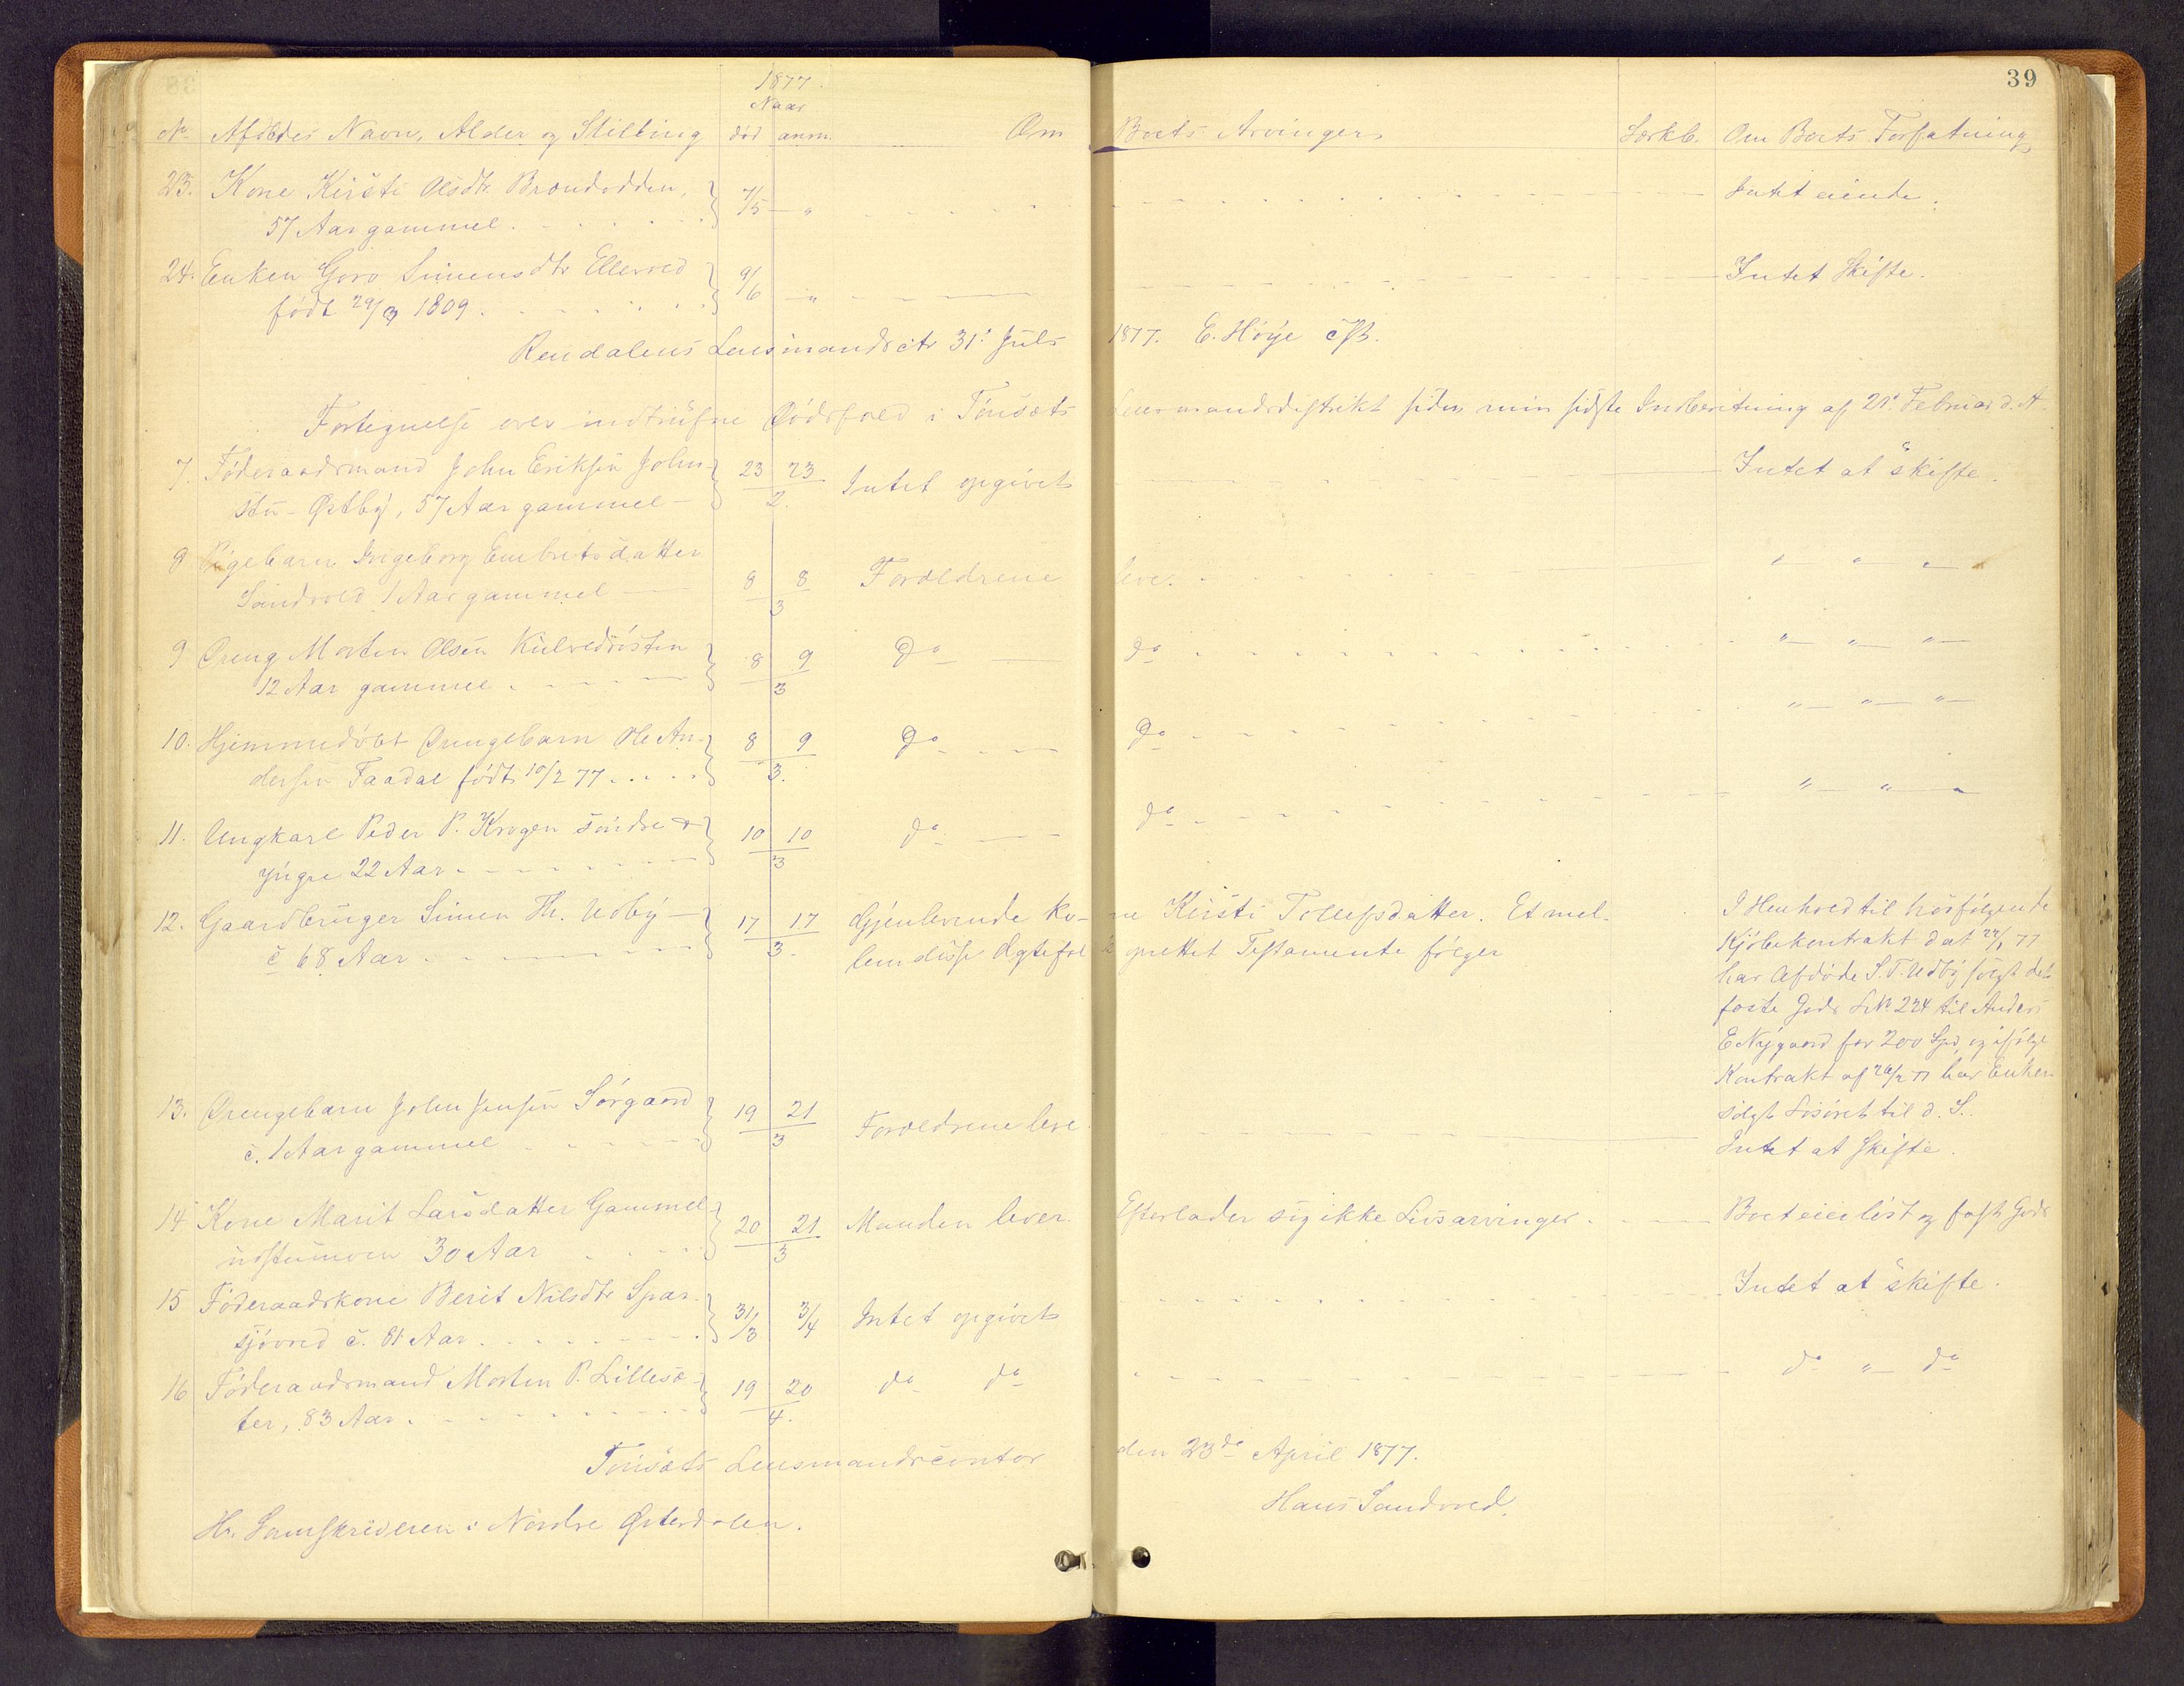 39
1877.
Naar
No Afdødes Navn, Alder og Stilling død anm. Om Boets Arvinger Særkb. Om Boets Forfatning
23. Kone Kirsti Olsdtr. Brændodden, 7/5 — " Intet eiende.
57 Aar gammel.
24. Enken Goro Simensdtr 9/6 — " Intet Skifte.
født 29/3 1809.
Rendalens Lensmandsctr 31' Juli 1877. E. Høye
Fortegnelse over indtrufne Dødsfald i Tønsæts Lensmandsdistrikt siden min sidste Indberetning af 21' Februar d. A.
7. Føderaadsmand John Eriksen John- 23 23 Intet opgivet Intet at skifte.
stu-Østby, 57 Aar gammel — 2.
8 Pigebarn Ingeborg Embretsdatter
Sandvold 1 Aar gammel — 8 8 Forældrene leve. " — " — " —
3
9 Dreng Morten Olsen 8 9 Do — do " — " — " —
12 Aar gammel 3
10. Hjemmedøbt Drengebarn Ole An- 8 9 Do — Do " — " — " —
dersen Faadal født 10/2 77 3.
11. Ungkarl Peder P. Krogen søndre & 10 10 do — do " — " — "
yngre 22 Aar 3
12. Gaardbruger Simen Th. Udby — 17 17 Gjenlevende Ko- ne Kirsti Tollefsdatter. Et mel- I Henhold til hosfølgende
c 68 Aar 3. lem disse Ægtefol k oprettet Testamente følger Kjøbekontrakt dat 24/1 77
har Afdøde S. T. Udby solgt det
faste Gods LNo 224 til Anders
E Nygaard for 200 Spd, og ifølge
Kontrakt af 26/2 77 har Enken
solgt Løsøret til d. S.
13. Drengebarn John Jensen Sørgaard 19 21 Forældrene leve. Intet at skifte.
c. 1 Aar gammel 3
14 Kone Marit Larsdatter Gammel- 20 21 Manden lever. Efterlader sig ikke Livsarvinger. Boet eier løst og fast Gods
udstumoen 30 Aar 3
15 Føderaadskone Berit Nilsdtr Spar- 31/3 3/4 Intet opgivet Intet at skifte.
sjøvold c. 81 Aar
16 Føderaadsmand Morten P. Lillesæ- 19 20 do do do " do
ter, 83 Aar. 4.
Tønsæts Lensmandscontor den 23de April 1877.
Hans Sandvold.
Hr. Sorenskriveren i Nordre Østerdalen.